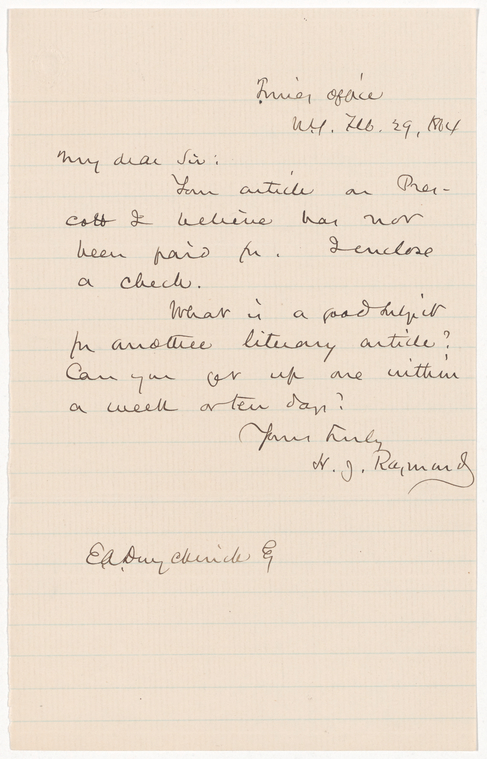 Times Office
N.Y. Feb. 29, 1864
My dear Sir:
Your article on Pres-
cott I believe has not
been paid for. I enclose
a check.
What is a good subject
for another literary article?
Can you get up one within
a week or ten days?
Yours truly
H. J. Raymond
E A Duyckinck Eq